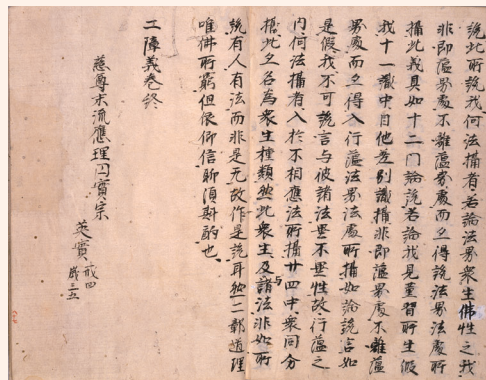 說此所說我何法攝者若論法界衆生佛性之我
非即蘊界處不離蘊界處而亦得說法界法處所
攝此義具如十二門論說若論我見熏習所生假
我十一識中自他差別識攝非即蘊界處不離蘊
界處而亦得入行蘊法界法處所攝如論說言如
是假我不可說言与彼諸法異不異性故行蘊之
内何法攝者入於不相應法所攝廿四中衆同分
攝此亦名為衆生種類然此衆生及与諸法非如所
說有人有法而非是无故作是說耳然二鄣道理
唯佛所窮但依仰信聊須斟酌也
二障義卷終
慈尊末流應理円實宗
英實 戒四
歳三五